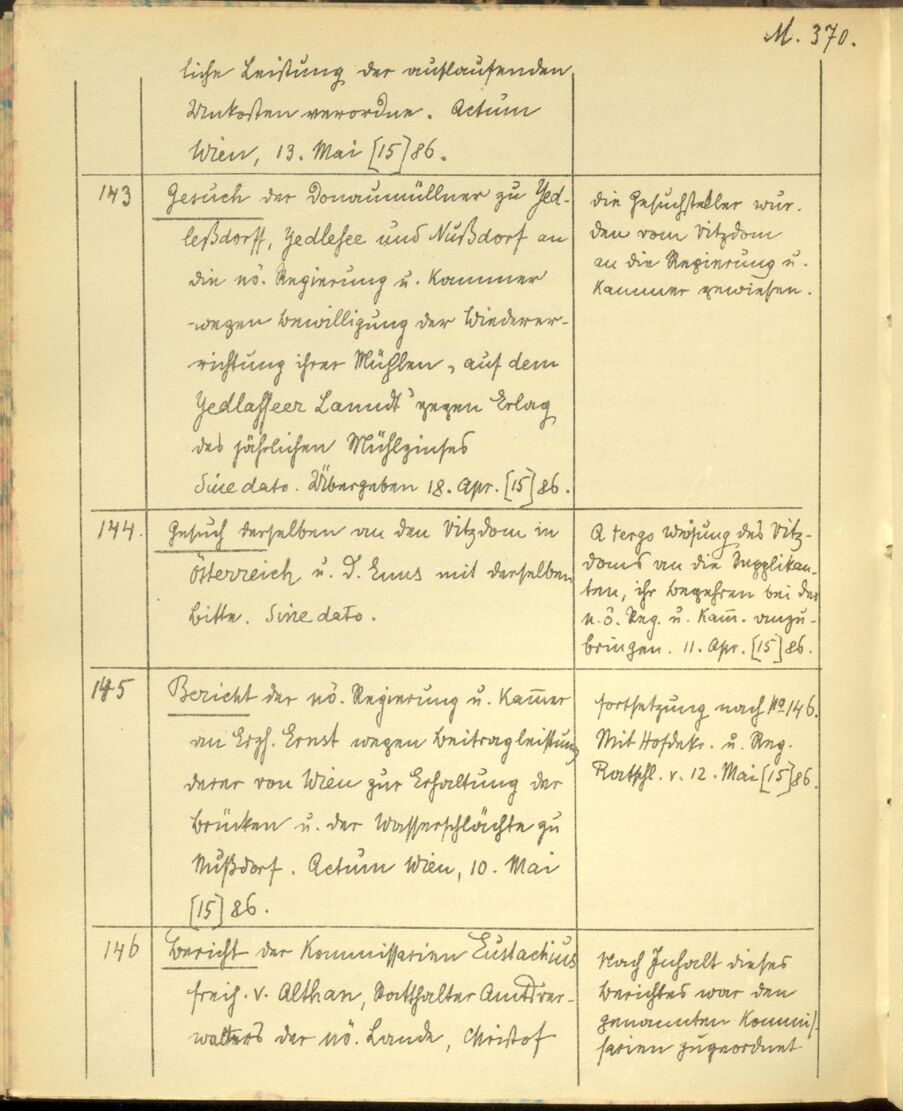 M. 370.
liche Leistung der auflaufenden
Unkosten verordne. Actum
Wien, 13. Mai [15]86.
143
Gesuch der Donaumüllner zu Jed-
leßdorff, Jedlesee und Nußdorf an
die nö. Regierung u. Kammer
wegen Bewilligung der Wiederer-
richtung ihrer Mühlen „auf dem
Jedlasseer Lanndt" gegen Erlag
des jährlichen Mühlzinses
Sine dato. Übergeben 18. Apr. [15]86.
Die Gesuchsteller wur-
den vom Vitzdom
an die Regierung u.
Kammer gewiesen.
144.
Gesuch derselben an den Vitzdom in
Österreich u. d. Enns mit derselben
Bitte. Sine dato.
A tergo Weisung des Vitz-
doms an die Supplikan-
ten, ihr Begehren bei der
n.ö. Reg. u. Kam̅. anzu-
bringen. 11. Apr. [15]86.
145
Bericht der nö. Regierung u. Kam̅er
an Erzh. Ernst wegen Beitragleistung
derer von Wien zur Erhaltung der
Brücken u. der Wasserschlächte zu
Nußdorf. Actum Wien, 10. Mai
[15]86.
Fortsetzung nach No 146.
Mit Hofdekr. u. Reg.
Ratschl. v. 12. Mai [15]86.
146
Bericht der Kommissarien Eustachius
Freih. v. Althan, Statthalter Amtsver-
walters der nö. Lande, Christof
Nach Inhalt dieses
Berichtes war den
genannten Kommis-
sarien zugeordnet